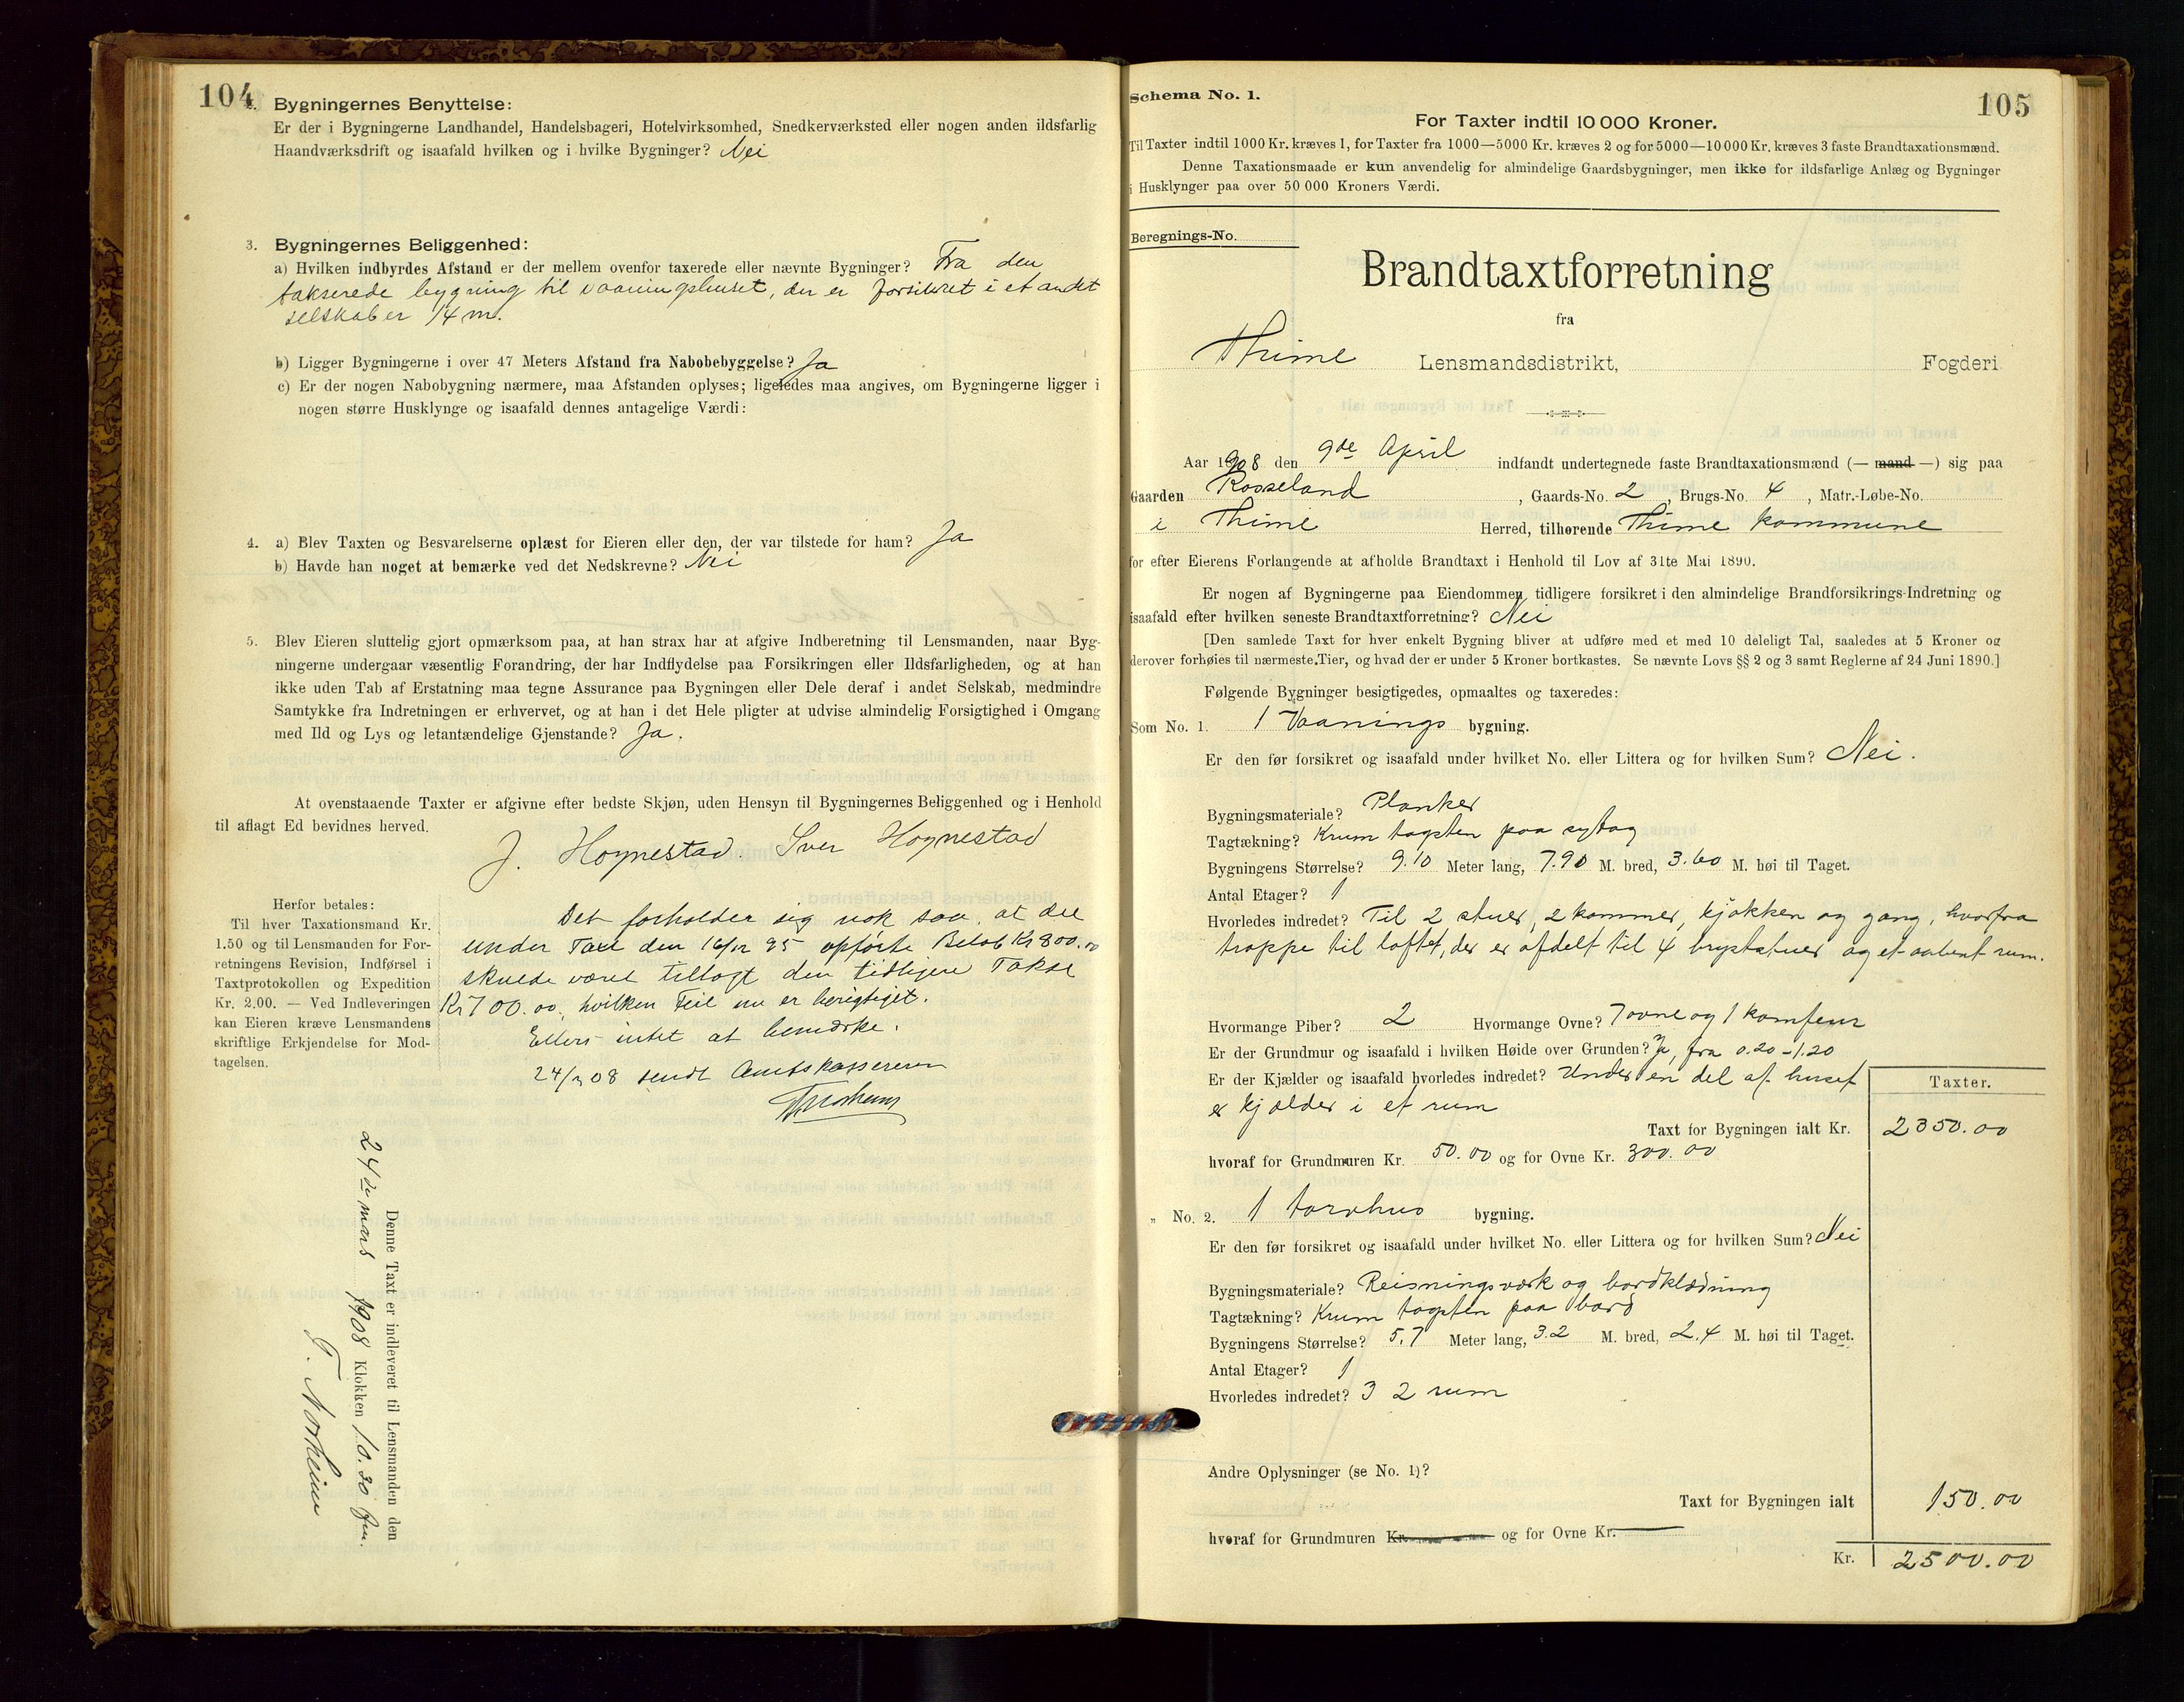 104
2. Bygningernes Benyttelse:
Er der i Bygningerne Landhandel, Handelsbageri, Hotelvirksomhed, Snedkerværksted eller nogen anden ildsfarlig
Haandværksdrift og isaafald hvilken og i hvilke Bygninger? Nei
3. Bygningernes Beliggenhed:
a) Hvilken indbyrdes Afstand er der mellem ovenfor taxerede eller nævnte Bygninger? Fra den
takserede bygning til vaaningshuset, der er forsikret i et andet
selskab er 14 m.
b) Ligger Bygningerne i over 47 Meters Afstand fra Nabobebyggelse? Ja
c) Er der nogen Nabobygning nærmere, maa Afstanden oplyses; ligeledes maa angives, om Bygningerne ligger i
nogen større Husklynge og isaafald dennes antagelige Værdi:
4. a) Blev Taxten og Besvarelserne oplæst for Eieren eller den, der var tilstede for ham? Ja
b) Havde han noget at bemærke ved det Nedskrevne? Nei
5. Blev Eieren sluttelig gjort opmærksom paa, at han strax har at afgive Indberetning til Lensmanden, naar Byg-
ningerne undergaar væsentlig Forandring, der har Indflydelse paa Forsikringen eller Ildsfarligheden, og at han
ikke uden Tab af Erstatning maa tegne Assurance paa Bygningen eller Dele deraf i andet Selskab, medmindre
Samtykke fra Indretningen er erhvervet, og at han i det Hele pligter at udvise almindelig Forsigtighed i Omgang
med Ild og Lys og letantændelige Gjenstande? Ja.
At ovenstaaende Taxter er afgivne efter bedste Skjøn, uden Hensyn til Bygningernes Beliggenhed og i Henhold
til aflagt Ed bevidnes herved.
J. Hognestad. Iver Hognestad
Herfor betales:
Til hver Taxationsmand Kr.
1.50 og til Lensmanden for For-
retningens Revision, Indførsel i
Taxtprotokollen og Expedition
Kr. 2.00. — Ved Indleveringen
kan Eieren kræve Lensmandens
skriftlige Erkjendelse for Mod-
tagelsen.
Det forholder sig nok saa, at det
under Taxt den 16/12 95 opførte Beløb Kr 800.00
skulde været tillagt den tidligere Takst
Kr 700.00, hvilken Feil nu er berigtiget.
Ellers intet at bemærke.
24/3 08 sendt Amtskassereren
Denne Taxt er indleveret til Lensmanden den
24de mars 1908 Klokken 10.30 fm.
T. Norheim
105
Schema No. 1.
For Taxter indtil 10 000 Kroner.
Til Taxter indtil 1000 Kr. kræves 1, for Taxter fra 1000—5000 Kr. kræves 2 og for 5000—10 000 Kr. kræves 3 faste Brandtaxationsmænd.
Denne Taxationsmaade er kun anvendelig for almindelige Gaardsbygninger, men ikke for ildsfarlige Anlæg og Bygninger
i Husklynger paa over 50 000 Kroners Værdi.
Beregnings-No.
Brandtaxtforretning
fra
Thime Lensmandsdistrikt, Fogderi
Aar 1908 den 9de April indfandt undertegnede faste Brandtaxationsmænd (— mand —) sig paa
Gaarden Rosseland, Gaards-No. 2, Brugs-No. 4, Matr.-Løbe-No.
i Thime Herred, tilhørende Thime kommune
for efter Eierens Forlangende at afholde Brandtaxt i Henhold til Lov af 31te Mai 1890.
Er nogen af Bygningerne paa Eiendommen tidligere forsikret i den almindelige Brandforsikrings-Indretning og
isaafald efter hvilken seneste Brandtaxtforretning? Nei
[Den samlede Taxt for hver enkelt Bygning bliver at udføre med et med 10 deleligt Tal, saaledes at 5 Kroner og
derover forhøies til nærmeste Tier, og hvad der er under 5 Kroner bortkastes. Se nævnte Lovs §§ 2 og 3 samt Reglerne af 24 Juni 1890.]
Følgende Bygninger besigtigedes, opmaaltes og taxeredes:
Som No. 1. 1 Vaanings bygning.
Er den før forsikret og isaafald under hvilket No. eller Littera og for hvilken Sum? Nei.
Bygningsmateriale? Planker
Tagtækning? Krum tagsten paa sutag
Bygningens Størrelse? 9.10 Meter lang, 7.90 M. bred, 3.60 M. høi til Taget.
Antal Etager? 1
Hvorledes indredet? Til 2 stuer, 2 kammer, kjøkken og gang, hvorfra
trappe til loftet, der er afdelt til 4 krypstatuer og et aabent rum.
Hvormange Piber? 2 Hvormange Ovne? 7 ovne og 1 komfeur
Er der Grundmur og isaafald i hvilken Høide over Grunden? Ja, fra 0.20 - 1.20
Er der Kjælder og isaafald hvorledes indredet? Under en del af huset
er kjælder i et rum
Taxter.
Taxt for Bygningen ialt Kr. 2350.00
hvoraf for Grundmuren Kr. 50.00 og for Ovne Kr. 300.00
„ No. 2. 1 torvhus bygning.
Er den før forsikret og isaafald under hvilket No. eller Littera og for hvilken Sum? Nei
Bygningsmateriale? Reisningsværk og bordklædning
Tagtækning? Krum tagsten paa bord
Bygningens Størrelse? 5.7 Meter lang, 3.2 M. bred, 2.4 M. høi til Taget.
Antal Etager? 1
Hvorledes indredet? 3 2 rum
Andre Oplysninger (se No. 1)?
Taxt for Bygningen ialt 150.00
hvoraf for Grundmuren Kr. og for Ovne Kr.
Kr. 2500.00